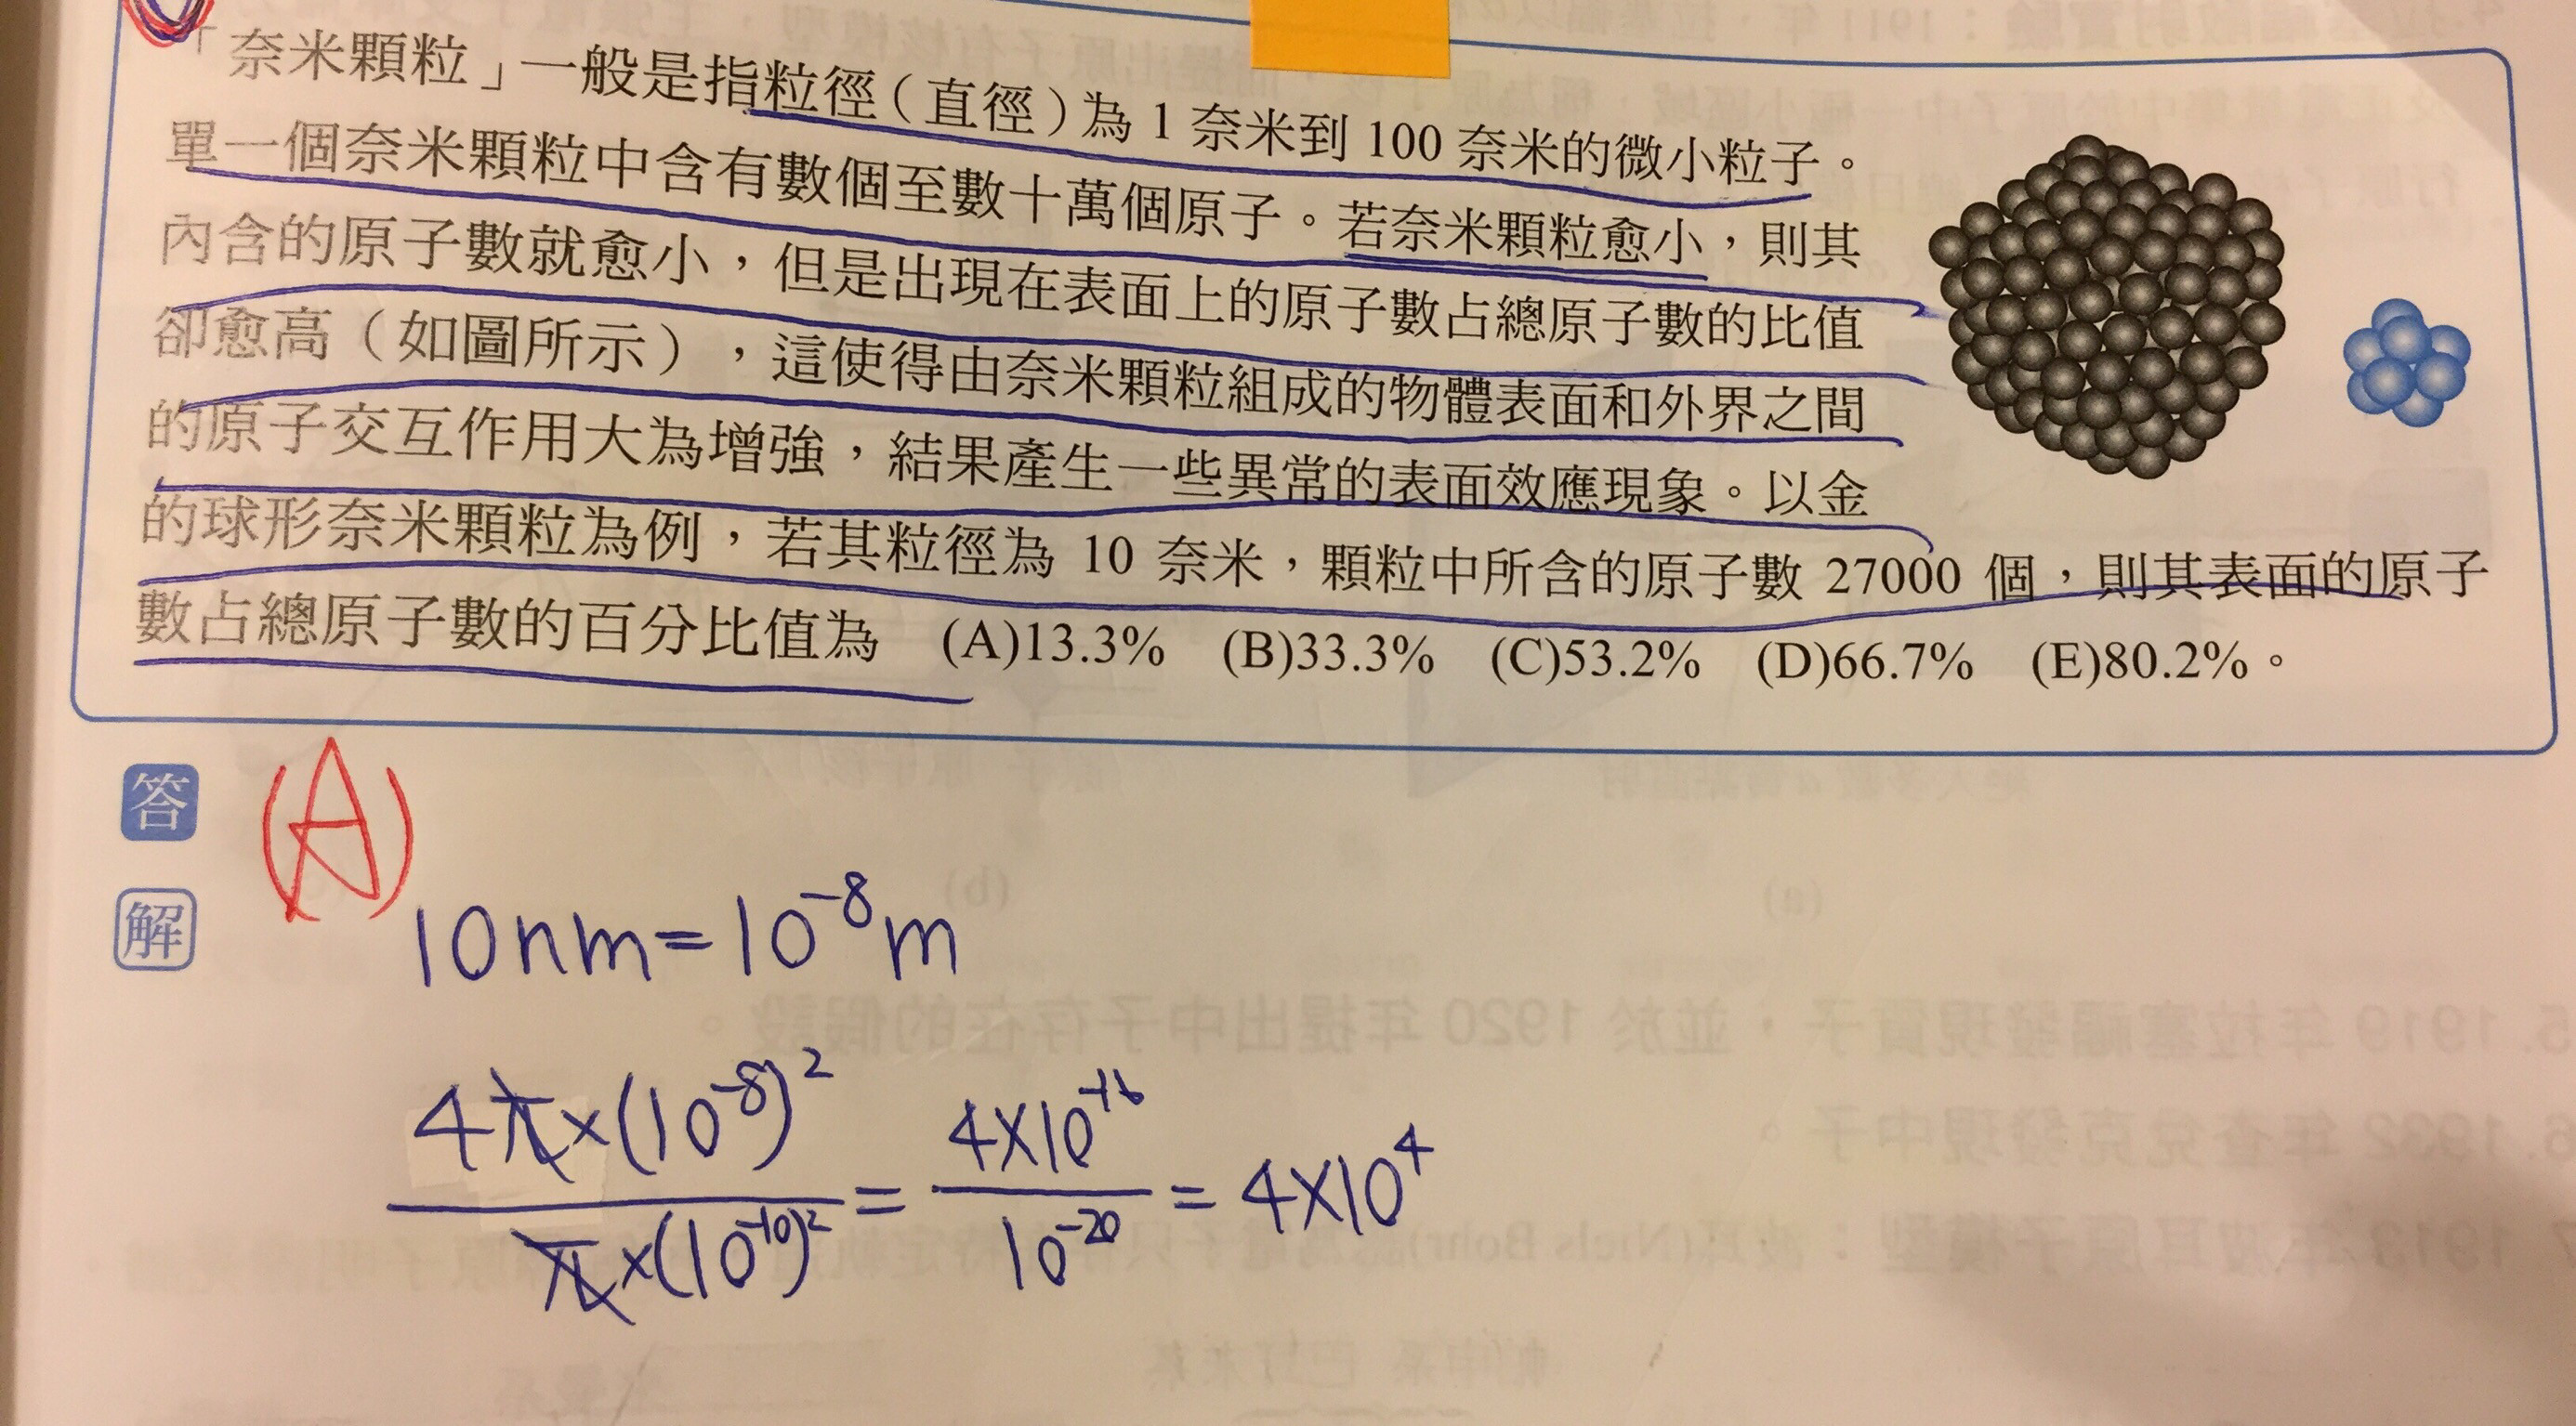 「奈米顆粒」一般是指粒徑（直徑）為 1 奈米到 100 奈米的微小粒子。
單一個奈米顆粒中含有數個至數十萬個原子。若奈米顆粒愈小，則其
內含的原子數就愈小，但是出現在表面上的原子數占總原子數的比值
卻愈高（如圖所示），這使得由奈米顆粒組成的物體表面和外界之間
的原子交互作用大為增強，結果產生一些異常的表面效應現象。以金
的球形奈米顆粒為例，若其粒徑為 10 奈米，顆粒中所含的原子數 27000 個，則其表面的原子
數占總原子數的百分比值為 (A)13.3% (B)33.3% (C)53.2% (D)66.7% (E)80.2%。
答 (A)
解
10nm=10⁻⁸m
4π×(10⁻⁸)²/π×(10⁻¹⁰)² = 4×10⁻¹⁶/10⁻²⁰ = 4×10⁴
(b)
(a)
5. 1919 年拉塞福發現質子，並於 1920 年提出中子存在的假設。
6. 1932 年查兌克發現中子。